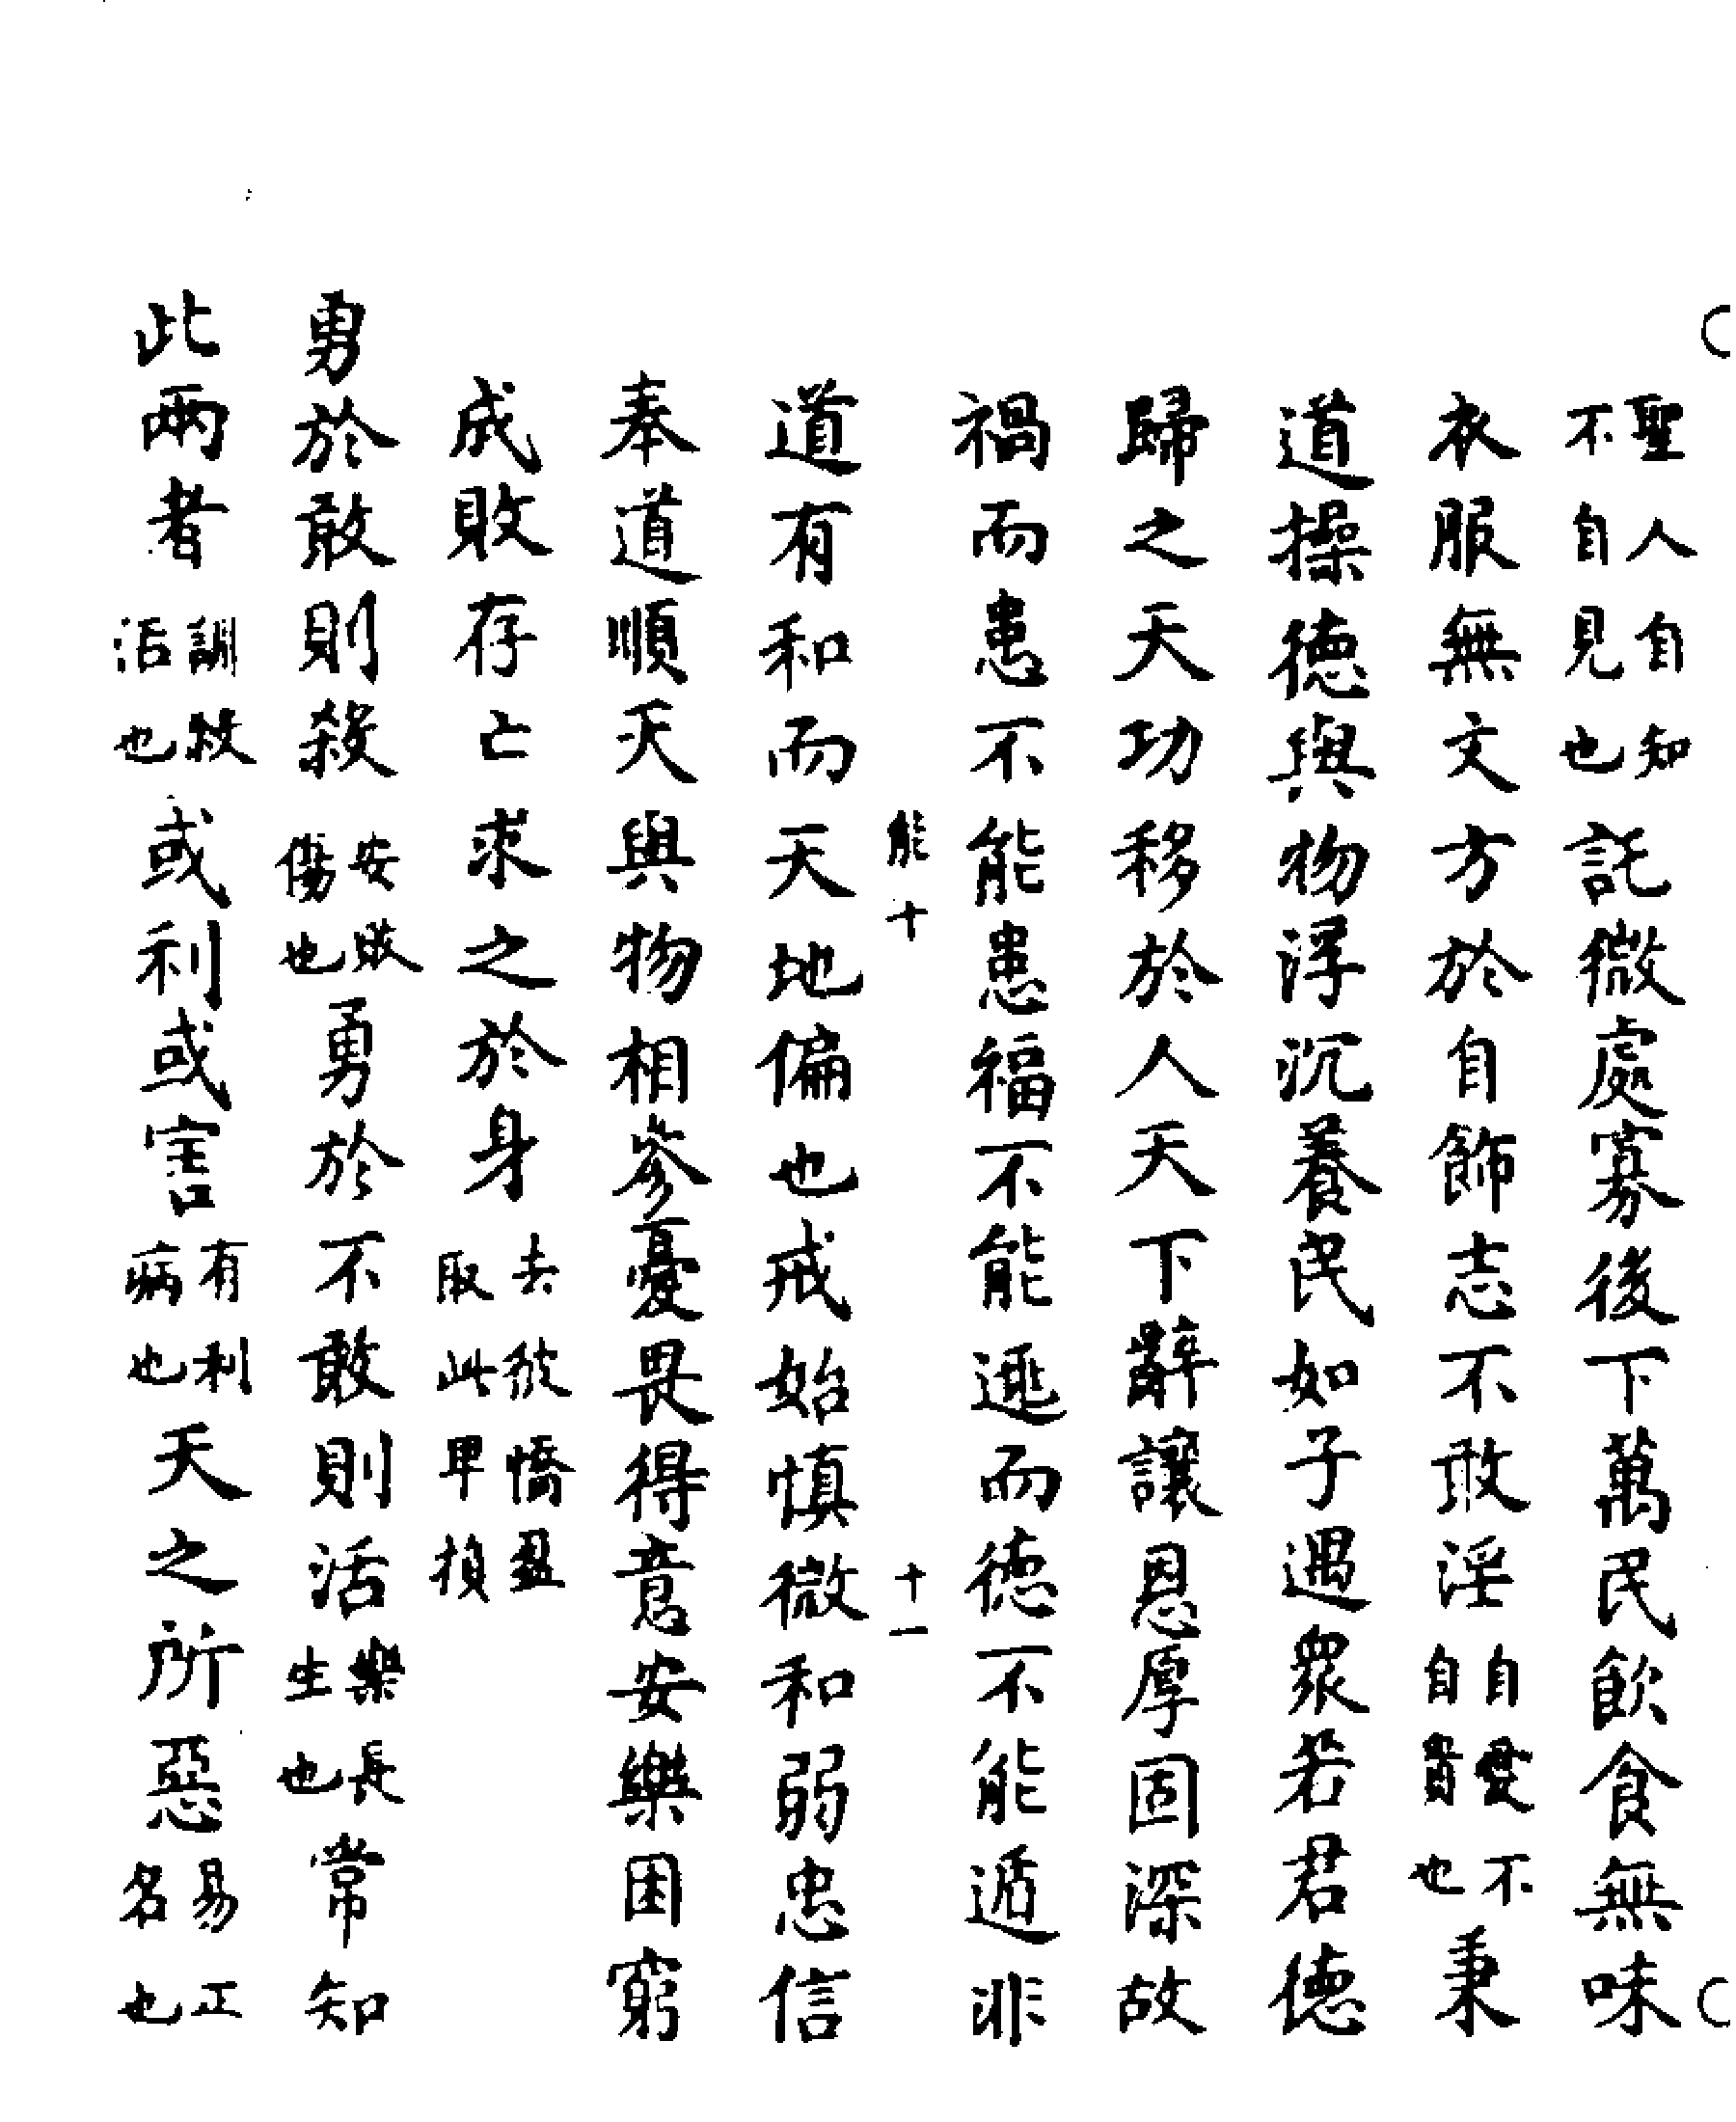 聖人自知不自見也託微處寡後下萬民飲食無味
衣服無文方於自飾志不敢淫自愛不自貴也秉
道操德與物浮沉養民如子遇衆若君德
歸之天功移於人天下辭讓恩厚固深故
禍而患不能患福不能遷而德不能遁非
能十 十一
道有和而天地偏也戒始慎微和弱忠信
奉道順天與物相參憂畏得意安樂困窮
成敗存亡求之於身去彼憍盈取此卑損
勇於敢則殺安敗傷也勇於不敢則活樂長生也常知
此兩者訓救活也或利或害有利病也天之所惡易正名也